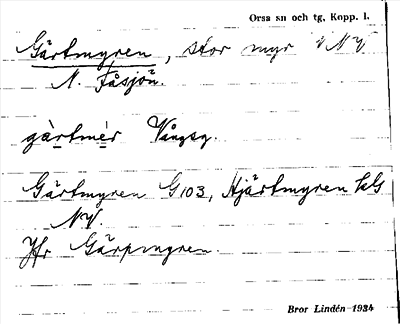 Orsa sn och tg, Kopp. l.
Gärtmyren, stor myr i NV
N. Fåsjön.
gàrtmèr Vångsg.
Gärtmyren G103, Hjärtmyren kls
NV.
Jfr Gärpmyren.
Bror Lindén 1934